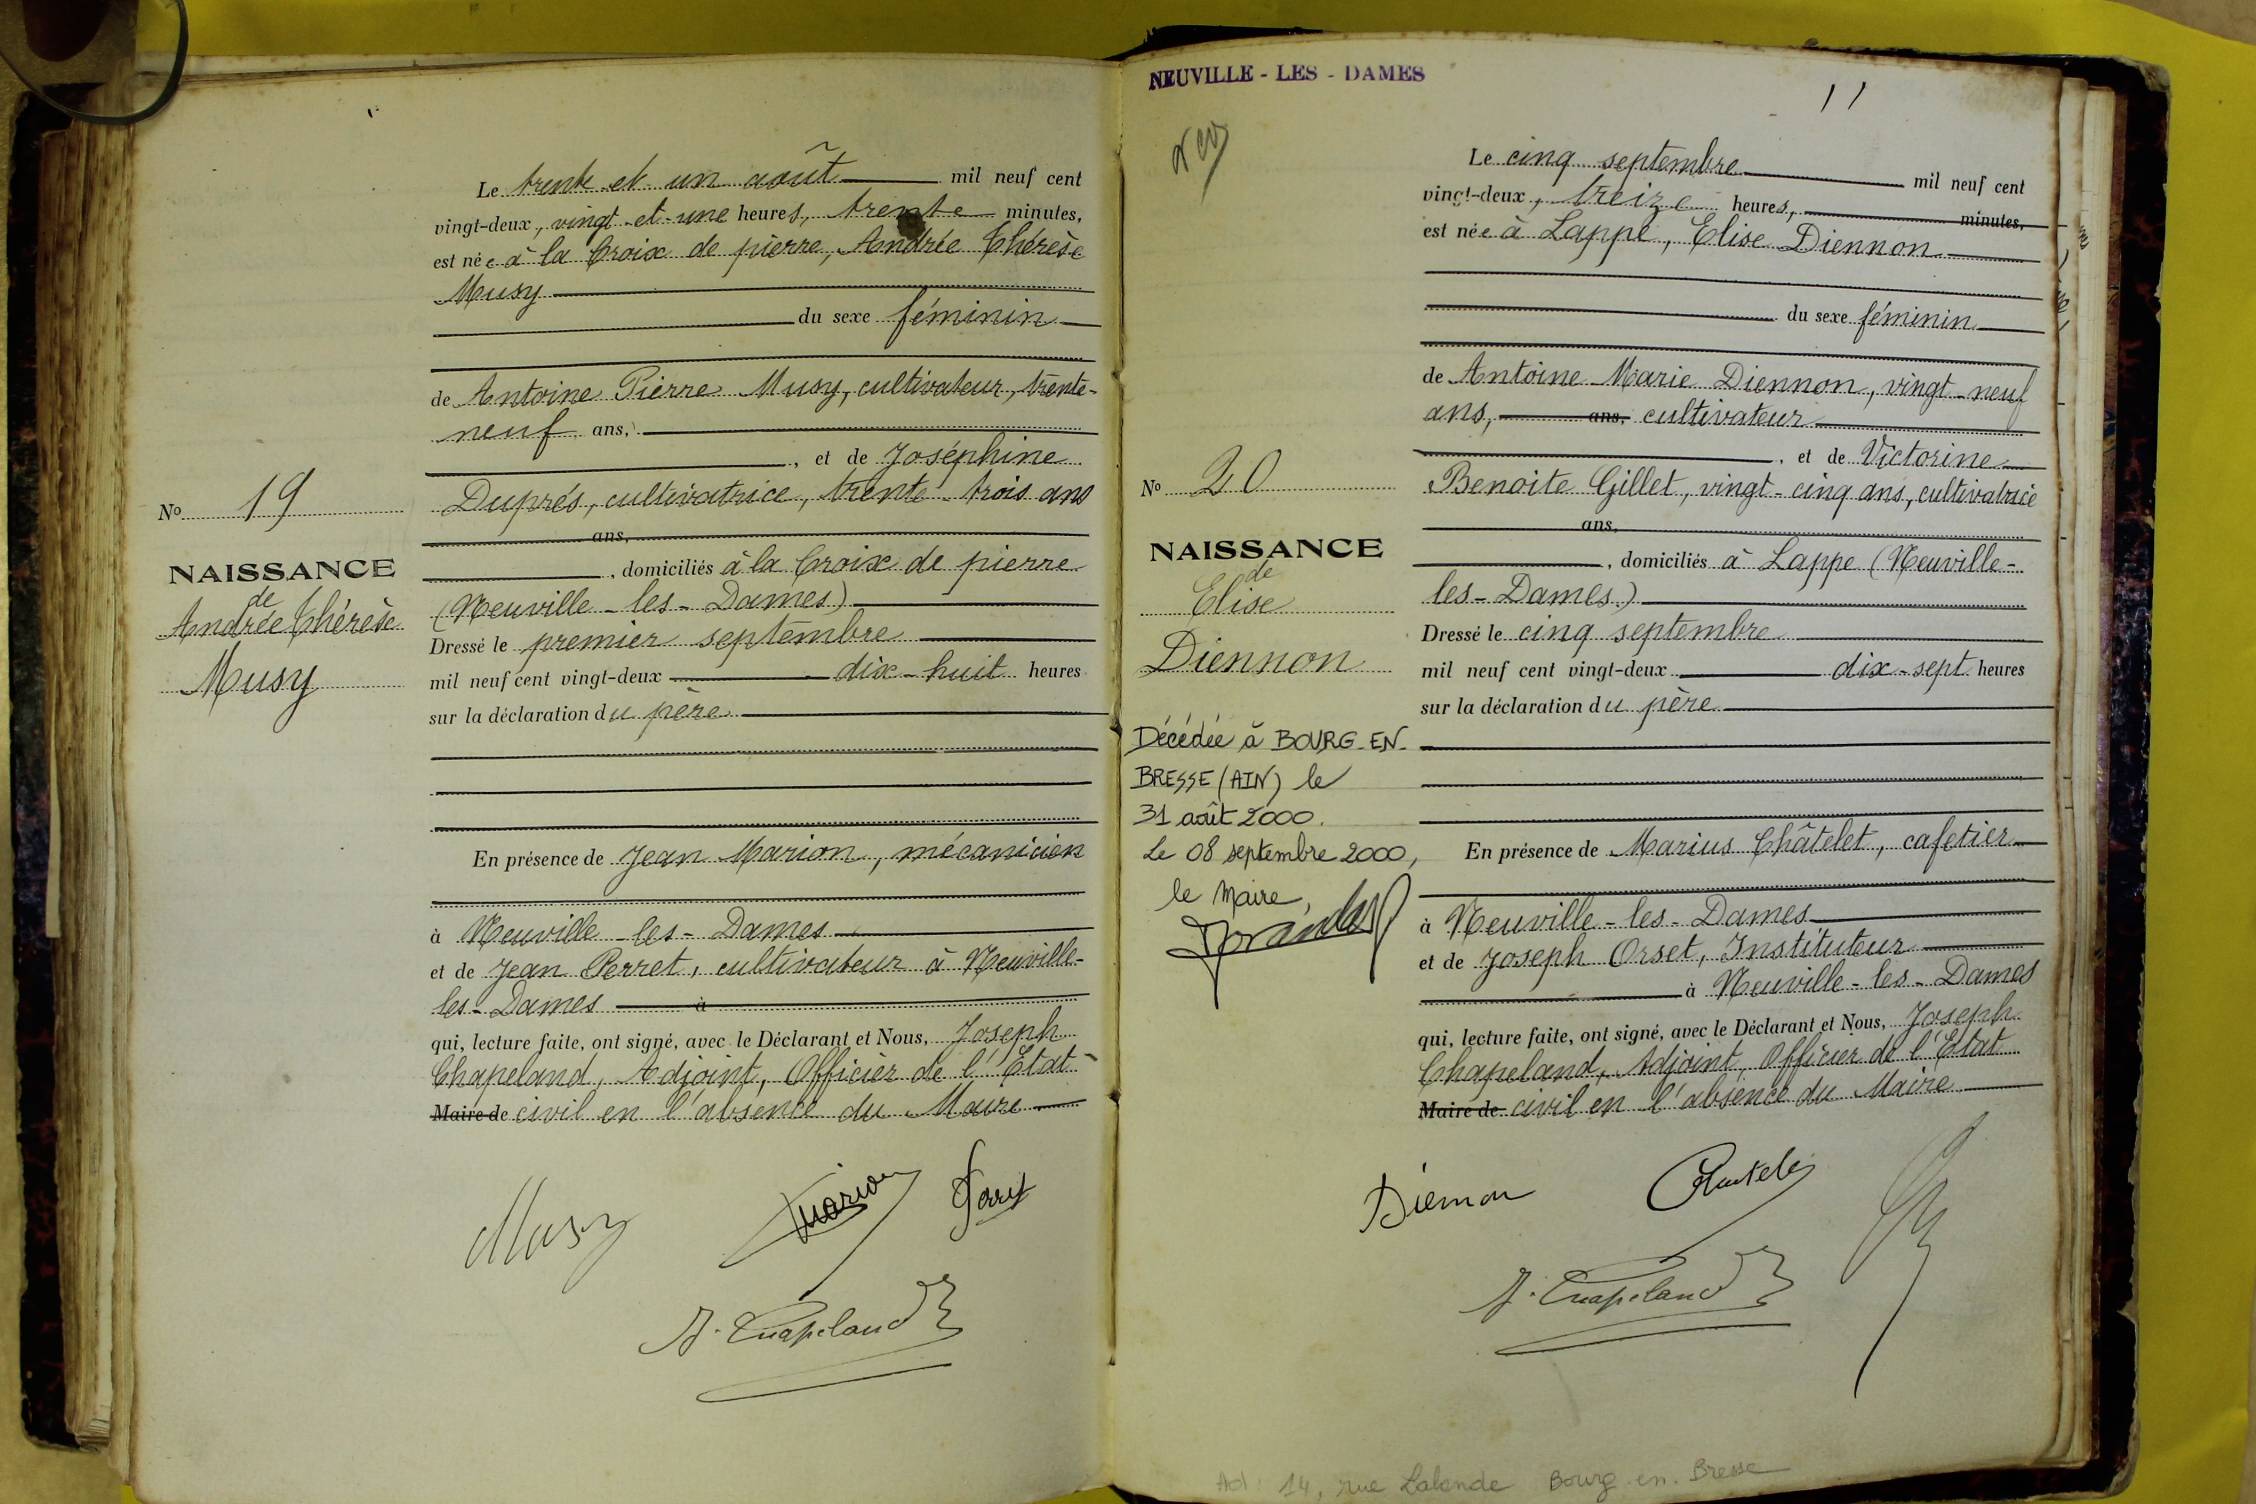 Le trente et un août mil neuf cent
vingt-deux, vingt et une heures, trente minutes,
est née à la Croix de pierre, Andrée Thérèse
Musy
du sexe féminin
de Antoine Pierre Musy, cultivateur, trente-
neuf ans,
, et de Joséphine
Duprés, cultivatrice, trente-trois ans
ans,
, domiciliés à la Croix de pierre
(Neuville-les-Dames)
Dressé le premier septembre
mil neuf cent vingt-deux dix-huit heures
sur la déclaration du père
En présence de Jean Marion, mécanicien
à Neuville-les-Dames
et de Jean Perret, cultivateur à Neuville-
les-Dames à
qui, lecture faite, ont signé, avec le Déclarant et Nous, Joseph
Chapeland, Adjoint, Officier de l'Etat
Maire de civil en l'absence du Maire
No 19
NAISSANCE
de
Andrée Thérèse
Musy
Musy Marion Perret
J. Chapeland
NEUVILLE-LES-DAMES
11
Le cinq septembre mil neuf cent
vingt-deux, treize heures, minutes,
est née à Lappe, Elise Diennon
du sexe féminin
de Antoine Marie Diennon, vingt-neuf
ans, ans, cultivateur
, et de Victorine
Benoite Gillet, vingt-cinq ans, cultivatrice
ans,
, domiciliés à Lappe (Neuville-
les-Dames)
Dressé le cinq septembre
mil neuf cent vingt-deux dix-sept heures
sur la déclaration du père
En présence de Marius Châtelet, cafetier
à Neuville-les-Dames
et de Joseph Orset, Instituteur
à Neuville-les-Dames
qui, lecture faite, ont signé, avec le Déclarant et Nous, Joseph
Chapeland, Adjoint, Officier de l'Etat
Maire de civil en l'absence du Maire
No 20
NAISSANCE
de
Elise
Diennon
Décédée à BOURG-EN-
BRESSE (AIN) le
31 août 2000.
Le 08 septembre 2000,
le Maire,
Diennon Chatelet
J. Chapeland
Ad: 14, rue Lalande Bourg-en-Bresse